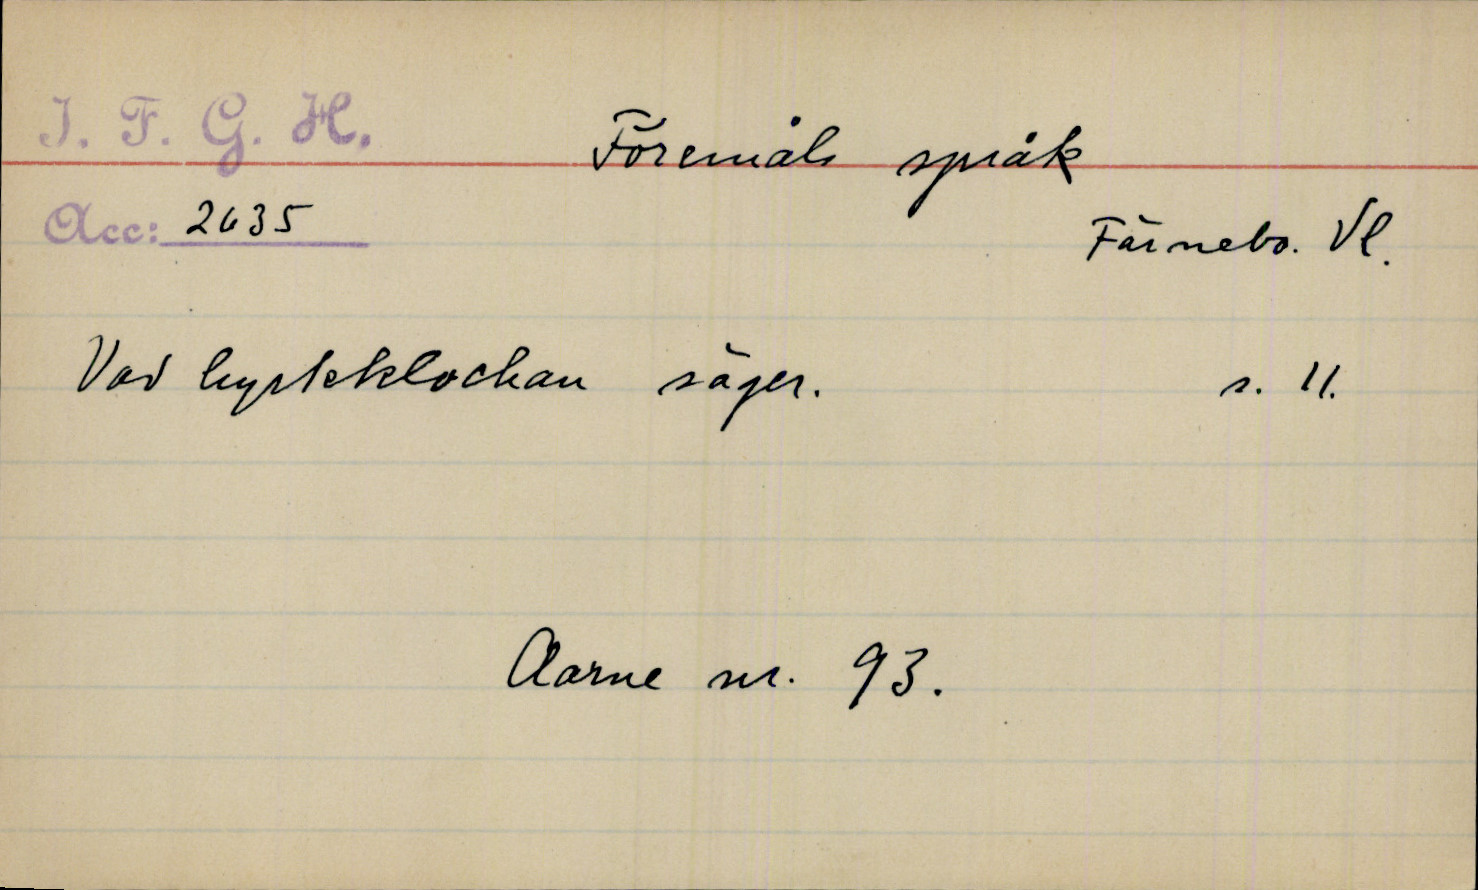 I. F. G. H.
Föremåls språk
Acc: 2635
Färnebo. Vl.
Vad kyrkklockan säger. s. 11.
Aarne nr. 93.